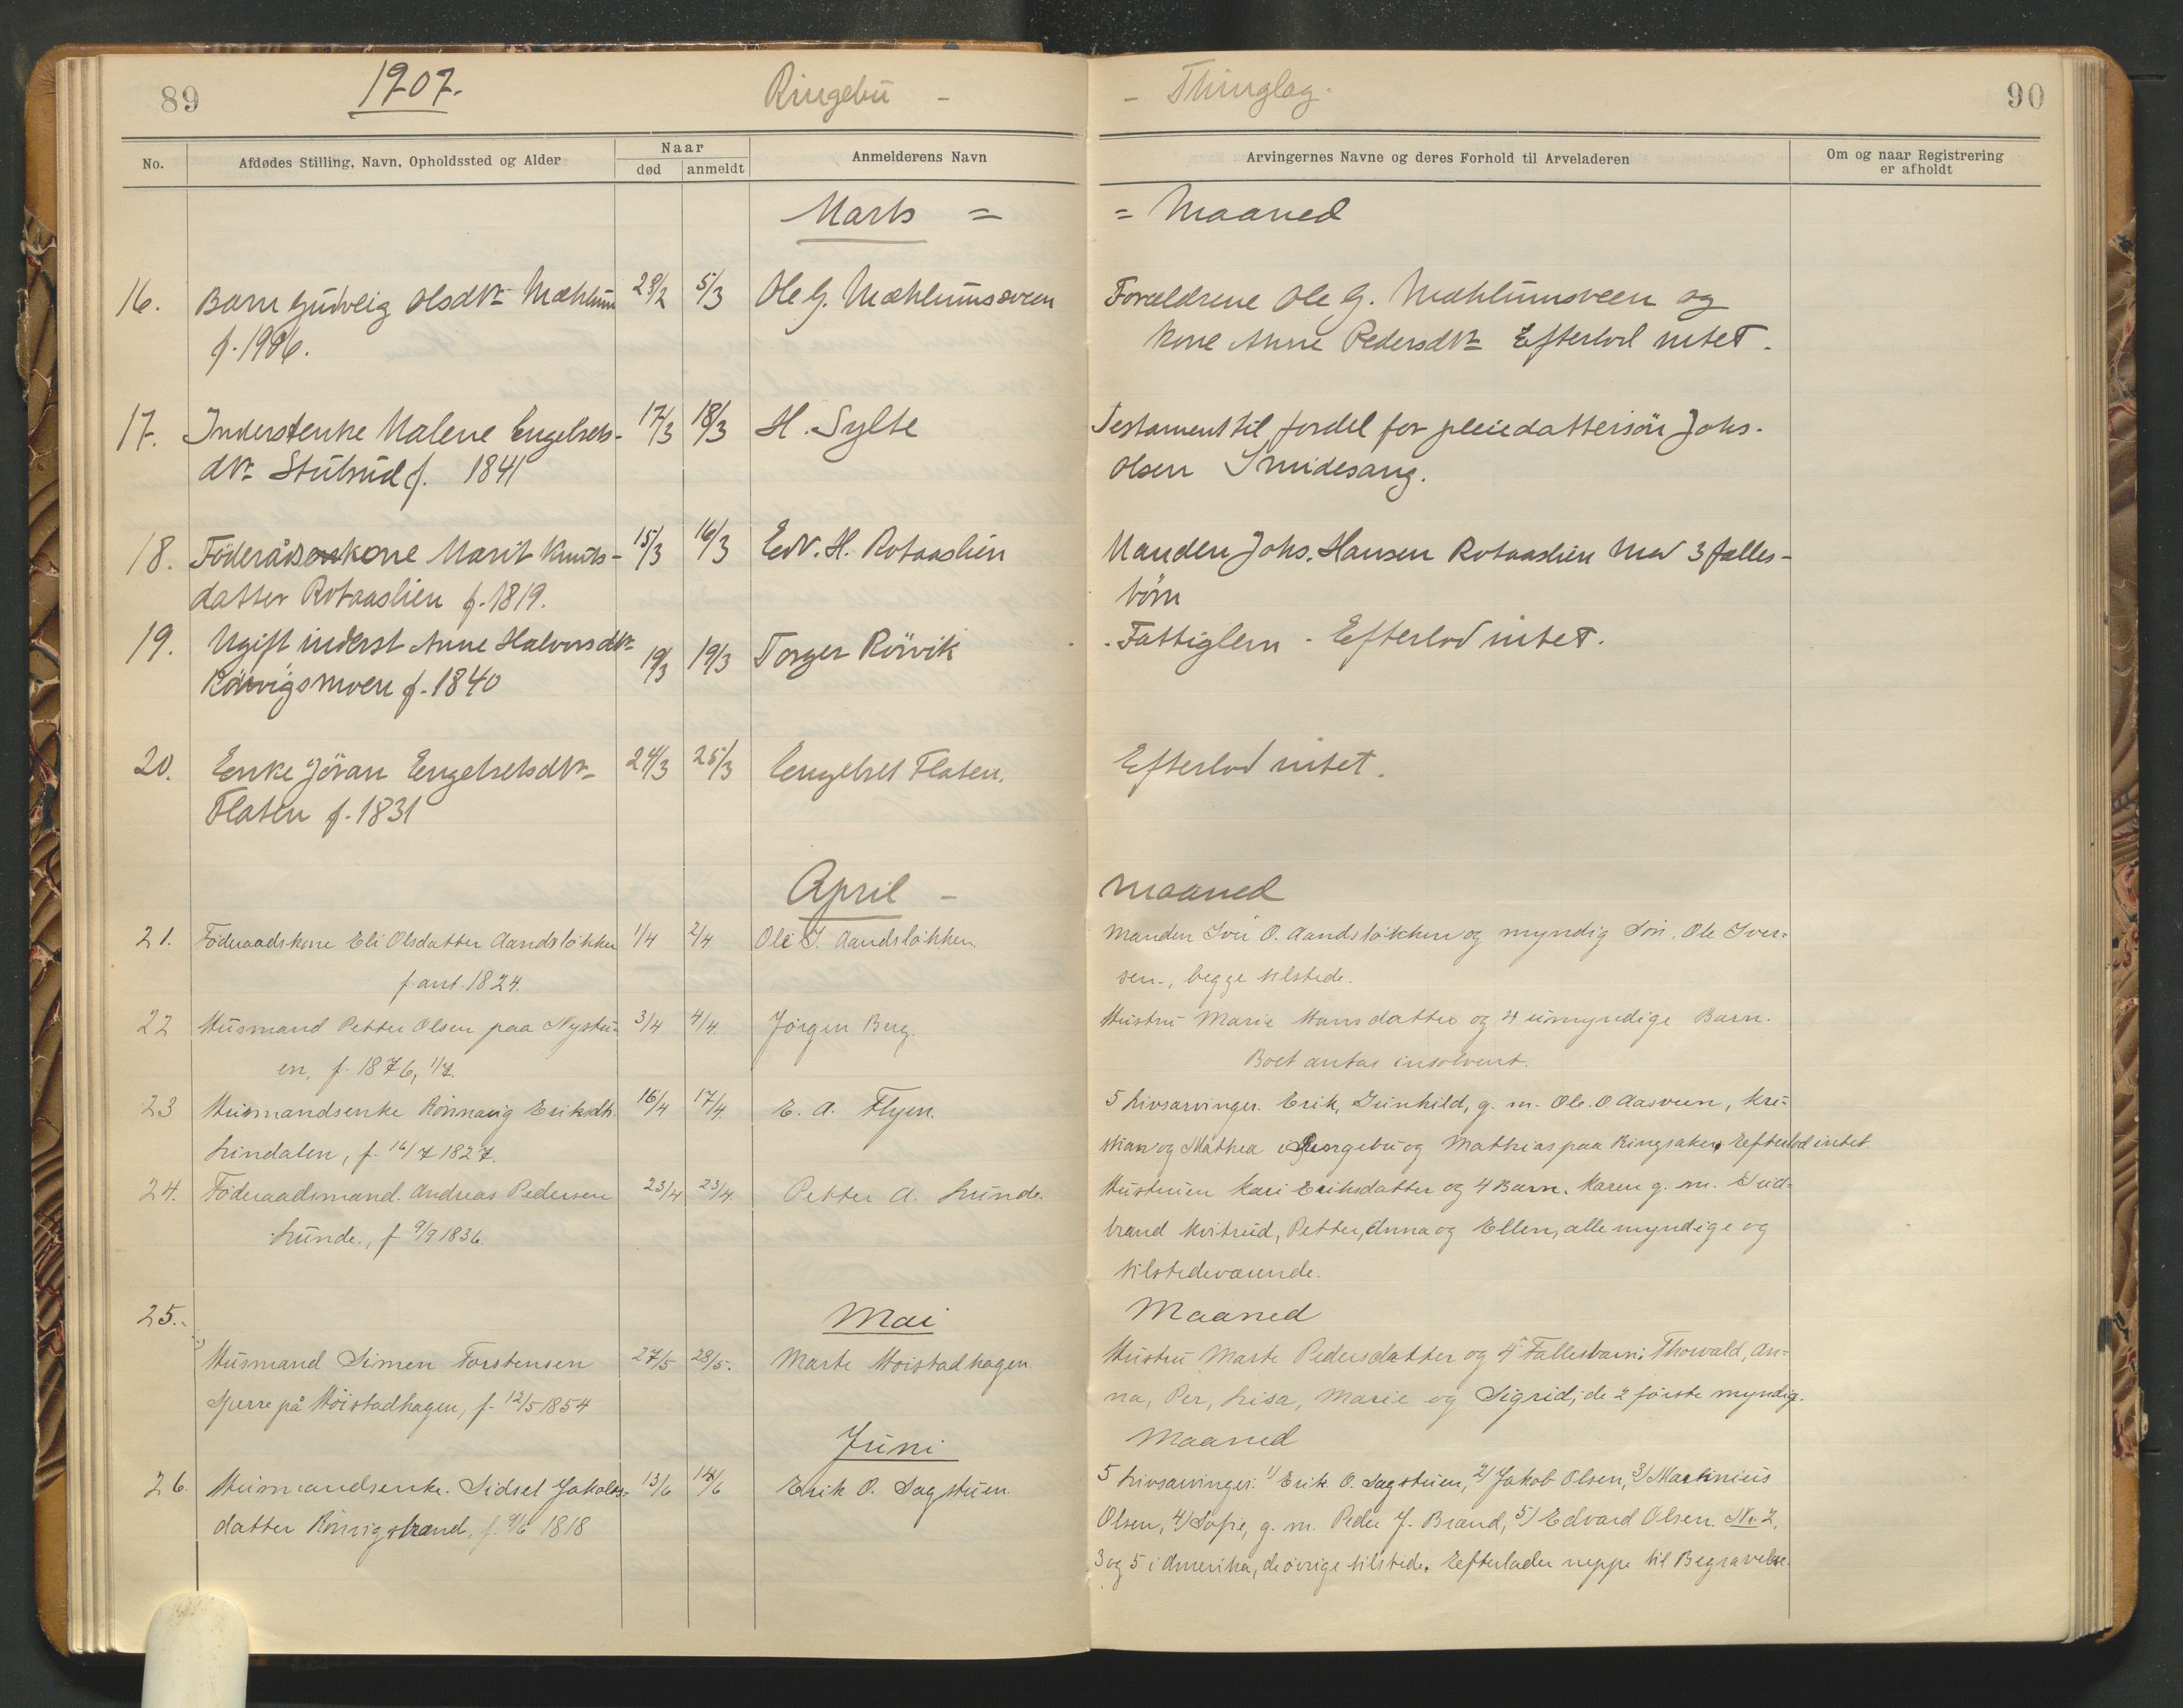 89
1907.
Ringebu -
- Thinglag.
90
No.
Afdødes Stilling, Navn, Opholdssted og Alder
Naar
død
anmeldt
Anmelderens Navn
Arvingernes Navne og deres Forhold til Arveladeren
Om og naar Registrering
er afholdt
Marts =
= Maaned
16. Barn Gudveig Olsdtr Mæhlum 28/2 5/3 Ole G. Mæhlumsveen Forældrene Ole G. Mæhlumsveen og
f. 1906. Kone Anne Pedersdtr Efterlod intet.
17. Inderstenke Malene Engebrets- 17/3 18/3 H. Sylte Testament til fordel for pleiedattersön Johs.
dtr Stulsrud f. 1841 Olsen Smidesang.
18. Föderådskone Marit Knuts- 15/3 16/3 Edv. H. Rotaaslien Manden Johs. Hansen Rotaaslien med 3 fælles-
datter Rotaaslien f. 1819. börn
19. Ugift inderst Anne Halvorsdtr 19/3 19/3 Torger Rövik Fattiglem - Efterlod intet.
Rönvigsmoen f. 1840
20. Enke Jöran Engebretsdtr 24/3 25/3 Engebret Flaten. Efterlod intet.
Flaten f. 1831
April -
maaned
21. Föderaadskone Eli Olsdatter Aandslökken 1/4 2/4 Ole I. Aandslökken. Manden Iver O. Aandslökken og myndig Sön. Ole Iver-
f. ant. 1824. sen, begge tilstede.
22 Husmand Petter Olsen paa Nystu- 3/4 4/4. Jörgen Berg. Hustru Marie Hansdatter og 4 umyndige Barn.
en, f. 1876, 1/7. Boet antas insolvent.
23 Husmandsenke Rönnaug Eriksdtr. 16/4 17/4. E. A. Flyen. 5 Livsarvinger. Erik, Gunhild, g. m. Ole. O. Aasveen, Kri-
Lindalen, f. 16/7 1827. stian og Mathea i Ringebu og Mathias paa Ringsaker. Efterlod intet.
24. Föderaadsmand. Andreas Pedersen 23/4 23/4. Petter A. Lunde. Hustruen Kari Eriksdatter og 4 Barn. Karen g. m. Gud-
Lunde., f. 9/9 1836. brand Kvitrud, Petter, Anna og Ellen, alle myndige og
tilstedeværende.
25.
Mai
Maaned
Husmand Simen Torstensen 27/5 28/5. Marte Höistadhagen. Hustru Marte Pedersdatter og 4 Fællesbarn: Thorvald, An-
Sperre på Höistadhagen, f. 12/5 1854 na, Per, Lisa, Marie og Sigrid, de 2 förste myndig.
Juni
Maaned
26. Husmandsenke. Sidsel Jakobs- 13/6 14/6 Erik O. Sagstuen. 5 Livsarvinger: 1/ Erik O. Sagstuen, 2/ Jakob Olsen, 3/ Martinius
datter, f. 9/6 1818 Olsen, 4/ Sofie, g. m. Peder J. Brænd, 5/ Edvard Olsen. Nr. 2,
3 og 5 i Amerika, de övrige tilstede. Efterlader neppe til Begravelse.